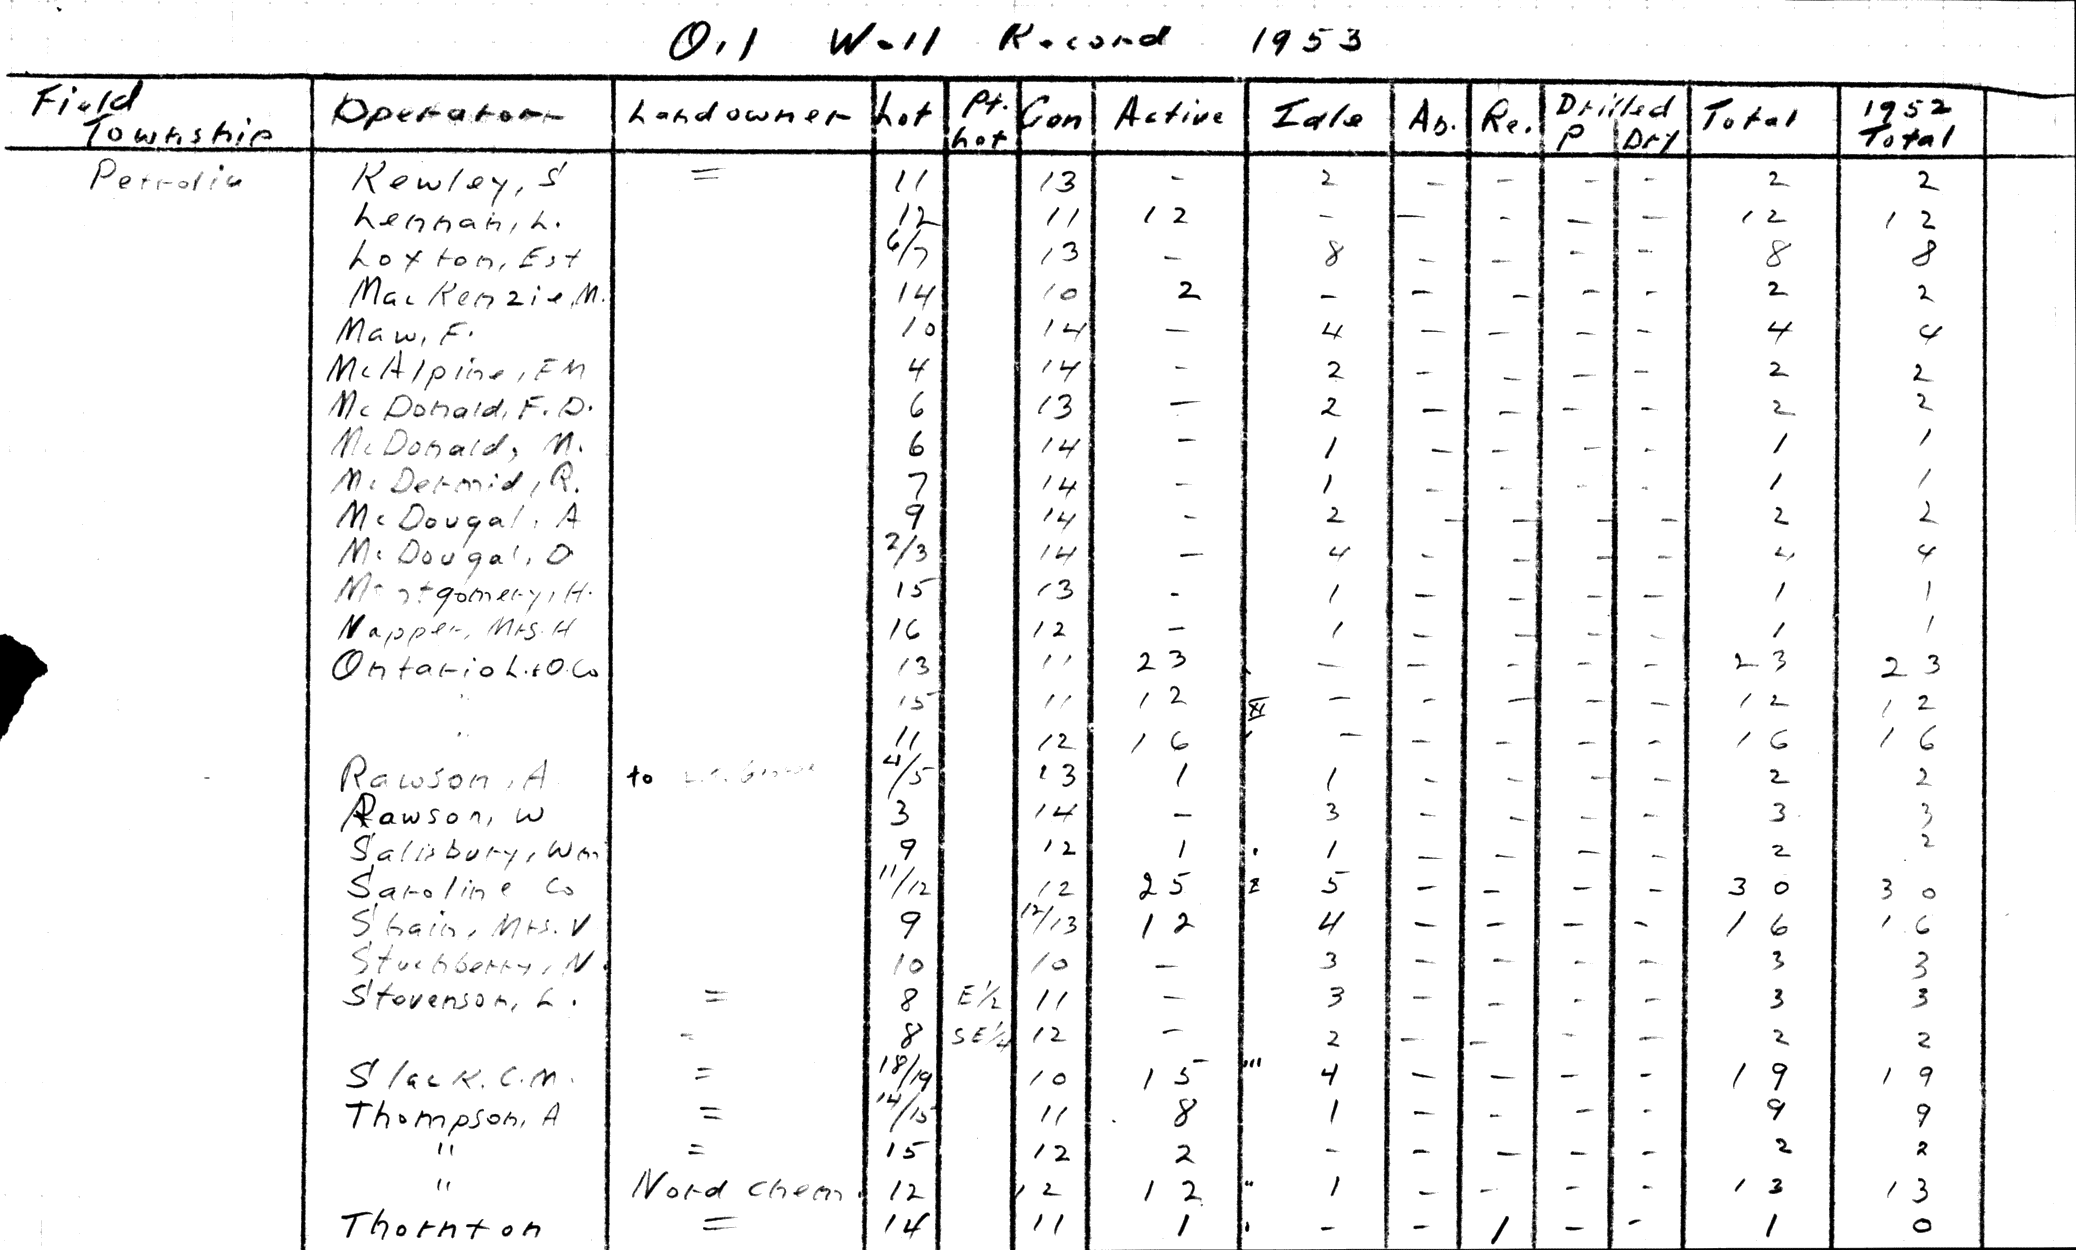 Oil Well Record 1953
Field Township Operator Landowner Lot Pt. Lot Con Active Idle Ab. Re. Drilled P Dry Total 1952 Total
Petrolia Kewley, S = 11 13 - 2 - - - - 2 2
Lennan, L. 12 11 12 - - - - - 12 12
Loxton, Est 6/7 13 - 8 - - - - 8 8
MacKenzie, M. 14 10 2 - - - - - 2 2
Maw, F. 10 14 - 4 - - - - 4 4
McAlpine, EM 4 14 - 2 - - - - 2 2
McDonald, F. D. 6 13 - 2 - - - - 2 2
McDonald, M. 6 14 - 1 - - - - 1 1
McDermid, R. 7 14 - 1 - - - - 1 1
McDougal, A 9 14 - 2 - - - - 2 2
McDougal, D 2/3 14 - 4 - - - - 4 4
Montgomery, H. 15 13 - 1 - - - - 1 1
Napper, Mrs. H 16 12 - 1 - - - - 1 1
Ontario L.+O. Co 13 11 23 - - - - - 23 23
" 15 11 12 XI - - - - - 12 12
" 11 12 16 - - - - - 16 16
Rawson, A to 4/5 13 1 1 - - - - 2 2
Rawson, W 3 14 - 3 - - - - 3 3
Salisbury, Wm 9 12 1 1 - - - - 2 2
Saroline Co 11/12 12 25 5 - - - - 30 30
Shain, Mrs. V 9 12/13 12 4 - - - - 16 16
Stuchberry, N. 10 10 - 3 - - - - 3 3
Stevenson, L. = 8 E½ 11 - 3 - - - - 3 3
= 8 SE¼ 12 - 2 - - - - 2 2
Slack, C. M. = 18/19 10 15 ''' 4 - - - - 19 19
Thompson, A = 14/15 11 8 1 - - - - 9 9
" = 15 12 2 - - - - - 2 2
" Nord Chem. 12 12 12 " 1 - - - - 13 13
Thornton = 14 11 1 ' - - 1 - - 1 0